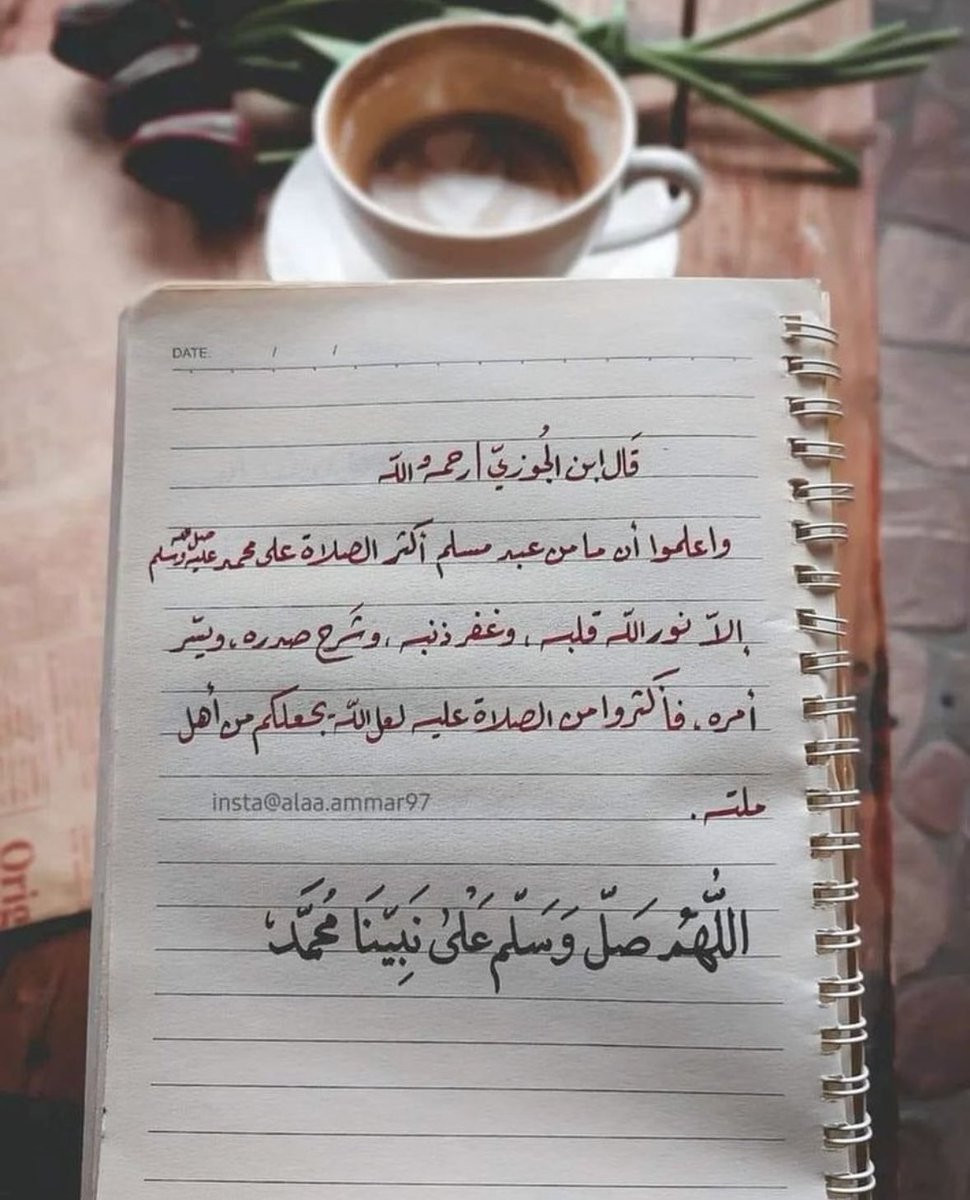 DATE: / /
قَال ابن الجُوزيّ | رحمه الله
واعلموا أن ما من عبد مسلم أكثر الصلاة على محمد صلى الله عليه وسلم
إلاّ نور الله قلبه ، وغفر ذنبه ، وشَرح صدره ، ويسّر
أمره ، فأكثروا من الصلاة عليه لعل الله يجعلكم من أهل
ملته .
insta@alaa.ammar97
اللَّهُم صَلّ وَسَلّم عَلىٰ نَبِيّنَا مُحَمَّد
Orig